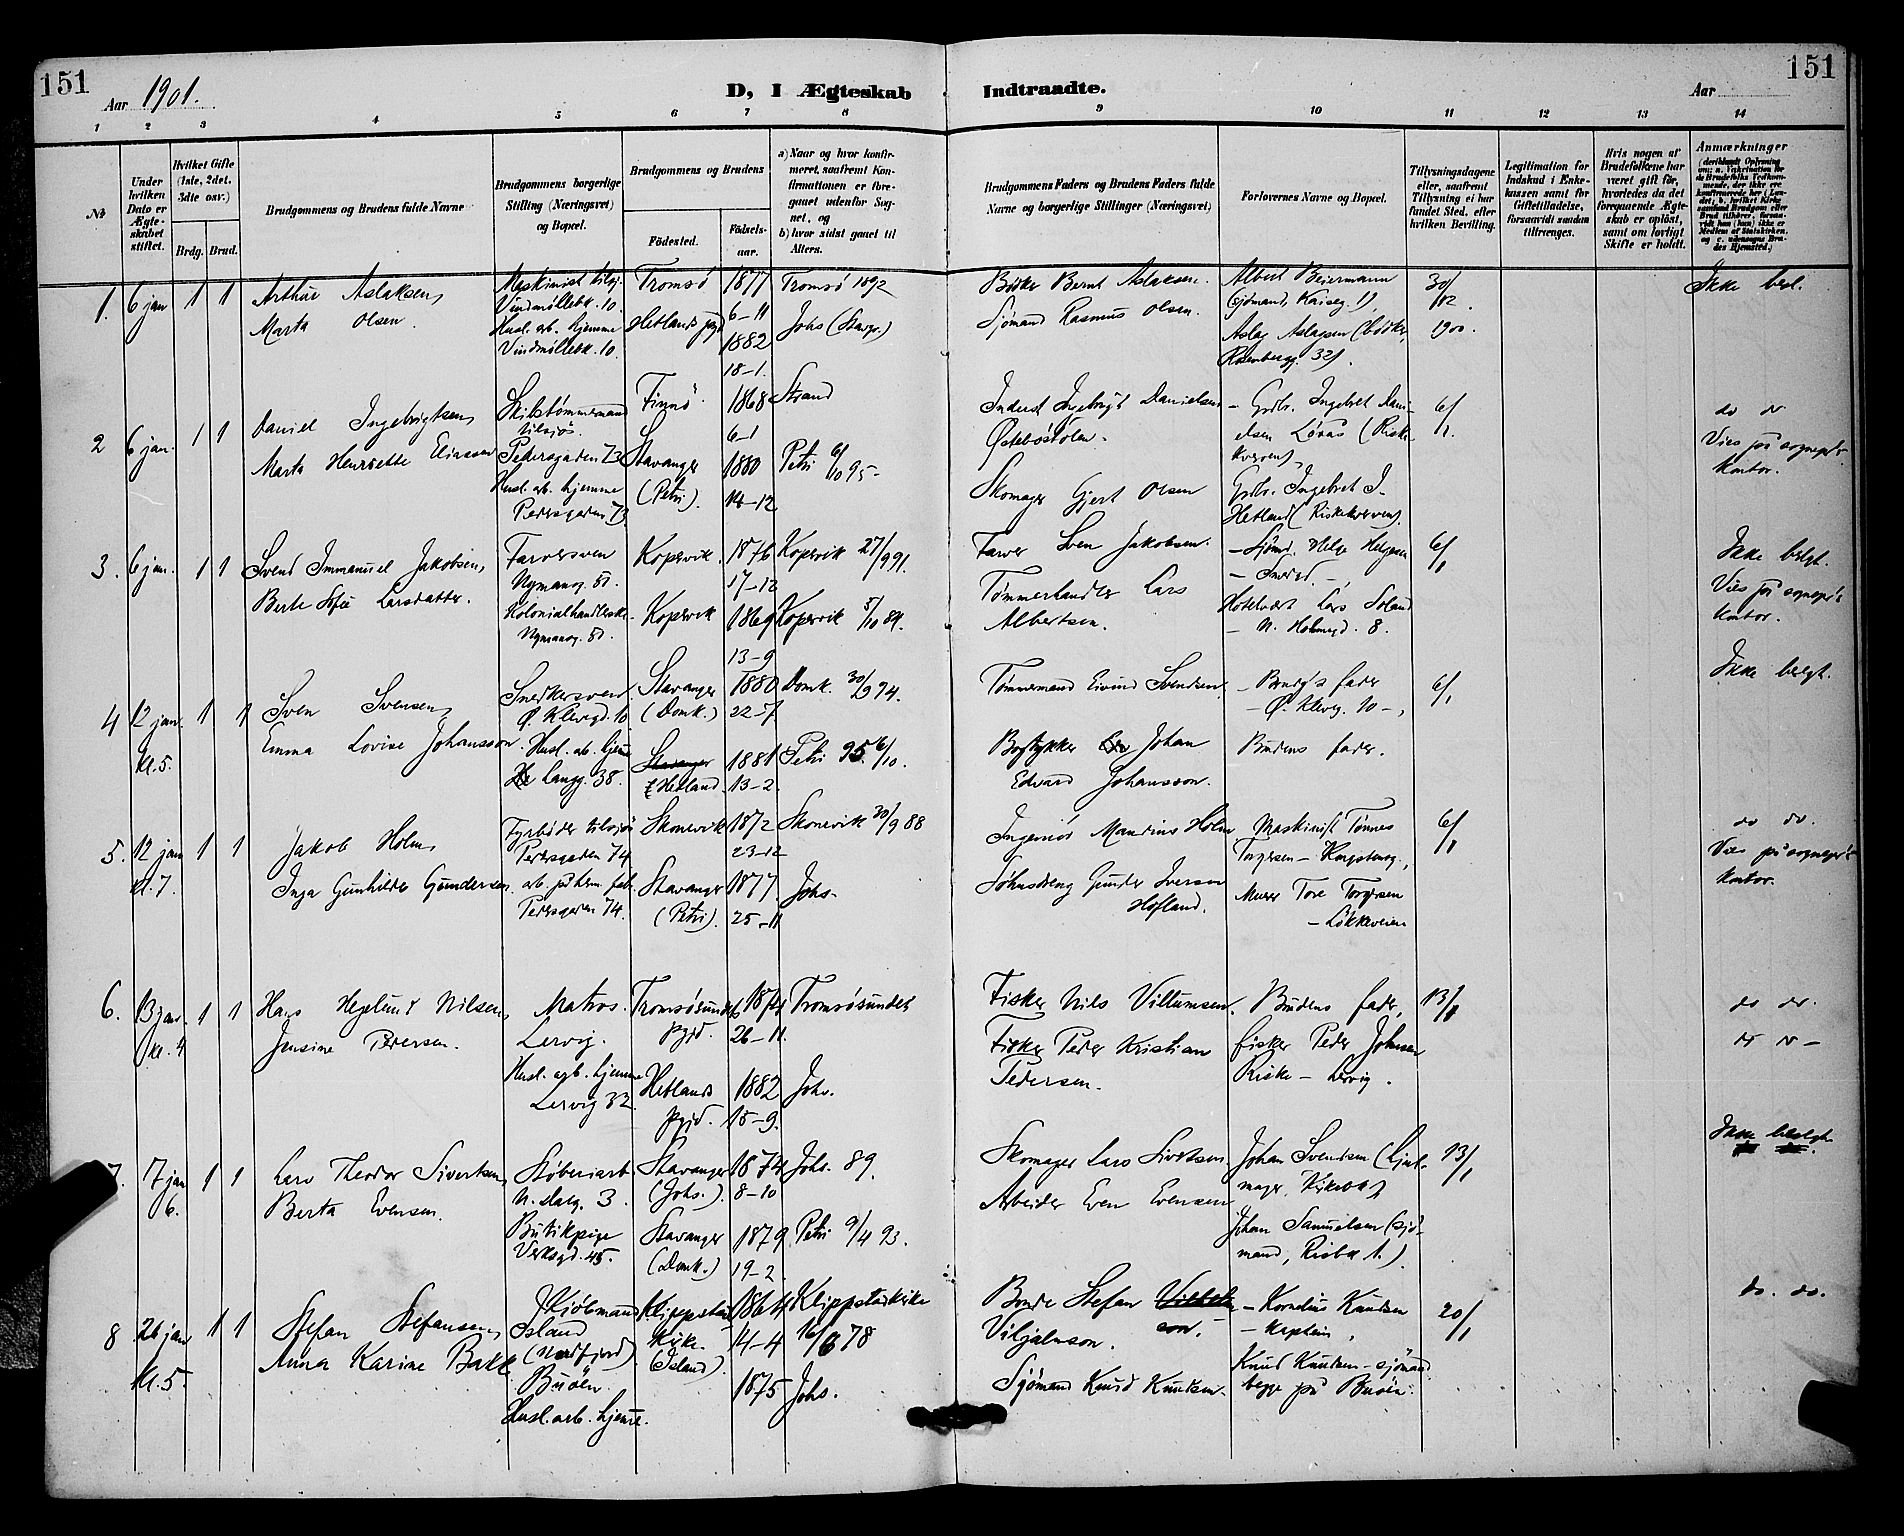 151
Aar 1901.
D, I Ægteskab Indtraadte.
Aar
151
1 2 3 4 5 6 7 8 9 10 11 12 13 14
№
Under hvilken Dato er Ægteskabet stiftet.
Hvilket Gifte (1ste, 2det, 3die osv.)
Brdg. Brud.
Brudgommens og Brudens fulde Navne
Brudgommens borgerlige Stilling (Næringsvei) og Bopæl.
Brudgommens og Brudens
Fødested.
Fødsels-aar.
a) Naar og hvor konfirmeret, saafremt Konfirmationen er foregaaet udenfor Sognet, og
b) hvor sidst gaaet til Alters.
Brudgommens Faders og Brudens Faders fulde Navne og borgerlige Stillinger (Næringsvei)
Forlovernes Navne og Bopæl.
Tillysningsdagene eller, saafremt Tillysning ei har fundet Sted, efter hvilken Bevilling.
Legitimation for Indskud i Enkekassen samt for Giftetilladelse, forsaavidt saadan tiltrænges.
Hvis nogen af Brudefolkene har været gift før, hvorledes da det foregaaende Ægteskab er opløst, samt om lovligt Skifte er holdt.
Anmærkninger
1. 6 jan 1 1
Arthur Aslaksen,
Marta Olsen.
Maskinist tilsj.
Vindmøllebk. 10.
Husl. arb. hjemme
Vindmøllebk. 10.
Tromsö 1877 6-11 Tromsö 1892
Hetlands pgd 1882 18-1. Johs (Stavgr.)
Bödker Bernt Aslaksen.
Sjömand Rasmus Olsen.
Albert Beiermann
(sjömand, Kaiseg. 1),
Aslag Aslagsen (bödker,
Rosenbergg. 32).
30/12. 1900.
Ikke besl.
2 6 jan. 1 1
Daniel Ingebrigtsen,
Marta Henriette Eliassen
Skibstömmermand
tilsjøs.
Pedersgaden 73
Husl. arb. hjemme
Pedersgaden 73
Finnö 1868 6-1 Strand
Stavanger (Petri). 1880 14-12 Petri 6/10 95-
Inderst Ingebrigt Danielsen
Østeböstölen.
Skomager Gjert Olsen
- Grdbr. Ingebret Danielsen Løvås (Riskekværven),
Grdbr. Ingebret I.
Hetland (Riskekværven).
6/1.
do do.
Vies på sognepr's
Kontor.
3. 6 jan. 1 1
Svend Immanuel Jakobsen,
Berte Sofie Larsdatter.
Farversven
Nymansg. 51.
Kolonialhandlerske.
Nymansg. 51.
Kopervik. 1876 17-12 Kopervik 27/9 91.
Kopervik 1869 13-9 Kopervik 5/10 84.
Farver Sven Jakobsen.
Tömmerhandler Lars
Albertsen.
- Sjömd. Helge Helgesen
Hotelvært Lars Soland
- N. Holmegd. 8.
6/1
Ikke beslgt.
Vies på sognepr's
Kontor.
4 12 jan. kl. 5. 1 1
Sven Svensen,
Emma Lovise Johansson.
Snedkersvend
Ø. Klevegd. 10
Husl. arb. hjem
Langg. 38.
Stavanger (Domk.) 1880 22-7 Domk. 30/9 94.
Stavanger Hetland. 1881 13-2. Petri 95 6/10.
Tömmermand Eivind Svendsen
Bogtykker Johan
Edvard Johansson.
- Brudg's fader
- Ø. Kleveg. 10 -,
Brudens fader.
6/1
Ikke beslgt.
5. 12 jan kl. 7. 1 1
Jakob Holm,
Inga Gunhilde Gundersen
Fyrböder tilsjøs
Pedersgaden 74
arb. på herm. fab.
Pedersgaden 74.
Skonevik 1872 23-12 Skonevik 30/9 88
Stavanger (Petri). 1877 25-11 Johs.
Ingeniör Mandius Holm
Gunder Iversen
Hofland.
Maskinist Tönnes
Torgersen - Kongsteng.,
Murer Tore Torgersen
- Lökkeveien
6/1
do do.
Vies på sognepr's
Kontor.
6. 13 jan. kl. 4 1 1
Hans Hegelund Nilsen,
Jensine Pedersen.
Matros.
Lervig.
Husl. arb. hjemme
Lervig 32.
Tromsösundets pgjd. 1874 26-11. Tromsösundet
Hetlands pgjd. 1882 15-9. Johs.
Fisker Nils Villumsen.
Fisker Peder Kristian
Pedersen.
Brudens fader,
fisker Peder Johnsen
Riske - Lervig.
13/1
do do.
do do -
7. 17 jan 6. 1 1
Lars Theodor Sivertsen,
Berta Evensen.
Stöberiarb.
N. dalg. 3.
Butikpige
Verksgd. 45.
Stavanger (Johs.) 1874 8-10 Johs. 89.
Stavanger (Domk.) 1879 19-2. Petri 9/4 93.
Skomager Lars Sivertsen
Arbeider Even Evensen
Johan Svendsen (Hjulmager, Kirkebk),
Johan Samuelsen (sjömand, Risbk 1.).
13/1
Ikke beslgt.
8 26 jan kl. 5. 1 1
Stefan Stefansen,
Anna Karine Bakke
Kjöbmand
Island
(Nordfjord).
Buöen.
Husl. arb. hjemme.
Klippstad Kirke. (Island). 1864 14-4 Klippstadkirke 16/6 78
1875 Johs.
Bonde Stefan
Viljalmson.
Sjömand Knud Knudsen.
- Kornelius Knudsen
- Kaptein,
Knud Knudsen - sjömand
begge på Buöen.
20/1
do. do.